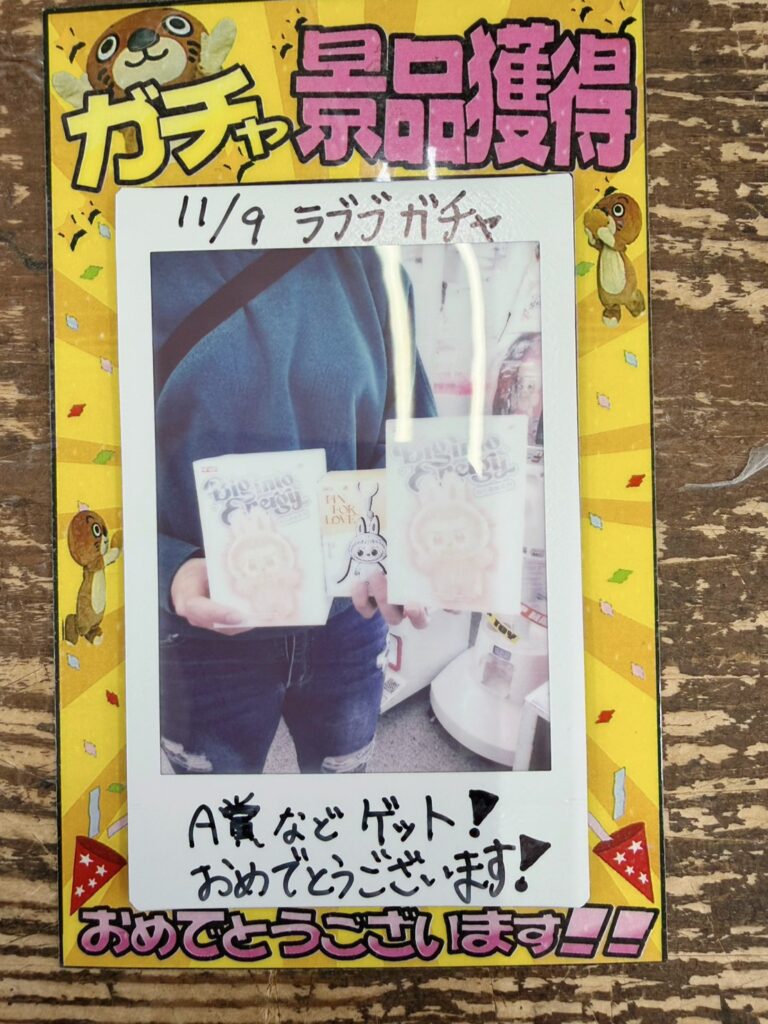 ガチャ 景品獲得
11/9 ラブブガチャ
Big into Energy
PIN FOR LOVE
Big into Energy
A賞などゲット!
おめでとうございます!
おめでとうございます!!